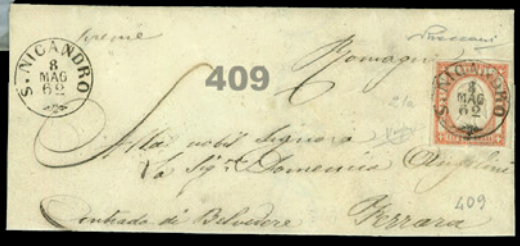 S. NICANDRO
8
MAG
62
Romagna
409
S. NICANDRO
8
MAG
62
21a
Alla nobil Signora
La Sig.ra Domenica Angelini
Contrada di Belvedere
Ferrara
409